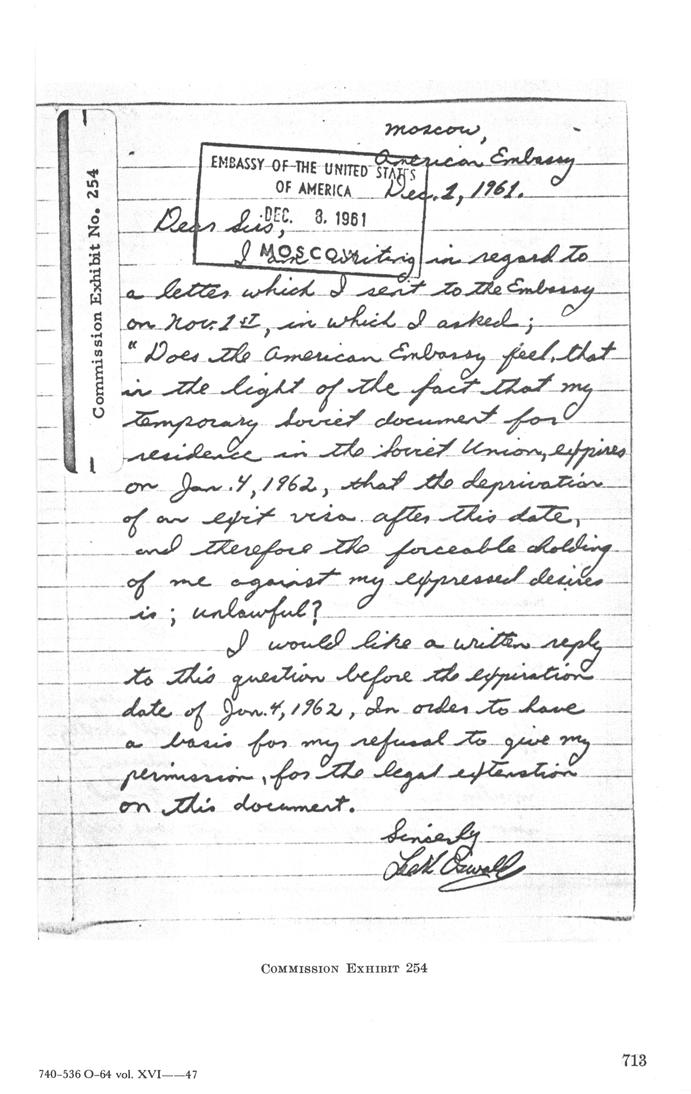 Commission Exhibit No. 254
Moscow,
American Embassy
Dec. 1, 1961.
EMBASSY OF THE UNITED STATES
OF AMERICA
DEC. 8. 1961
MOSCOW
Dear Sirs;
I am writing in regard to
a letter which I sent to the Embassy
on Nov. 1st, in which I asked;
"Does the American Embassy feel, that
in the light of the fact that my
temporary Soviet document for
residence in the Soviet Union, expires
on Jan. 4, 1962, that the deprivation
of an exit visa after this date,
and therefore the forceable holding
of me against my expressed desires
is; unlawful?
I would like a written reply
to this question before the expiration
date of Jan. 4, 1962, In order to have
a basis for my refusal to give my
permission, for the legal extenstion
on this document.
Sincerly
Lee H. Oswald
COMMISSION EXHIBIT 254
713
740-536 O-64 vol. XVI——47